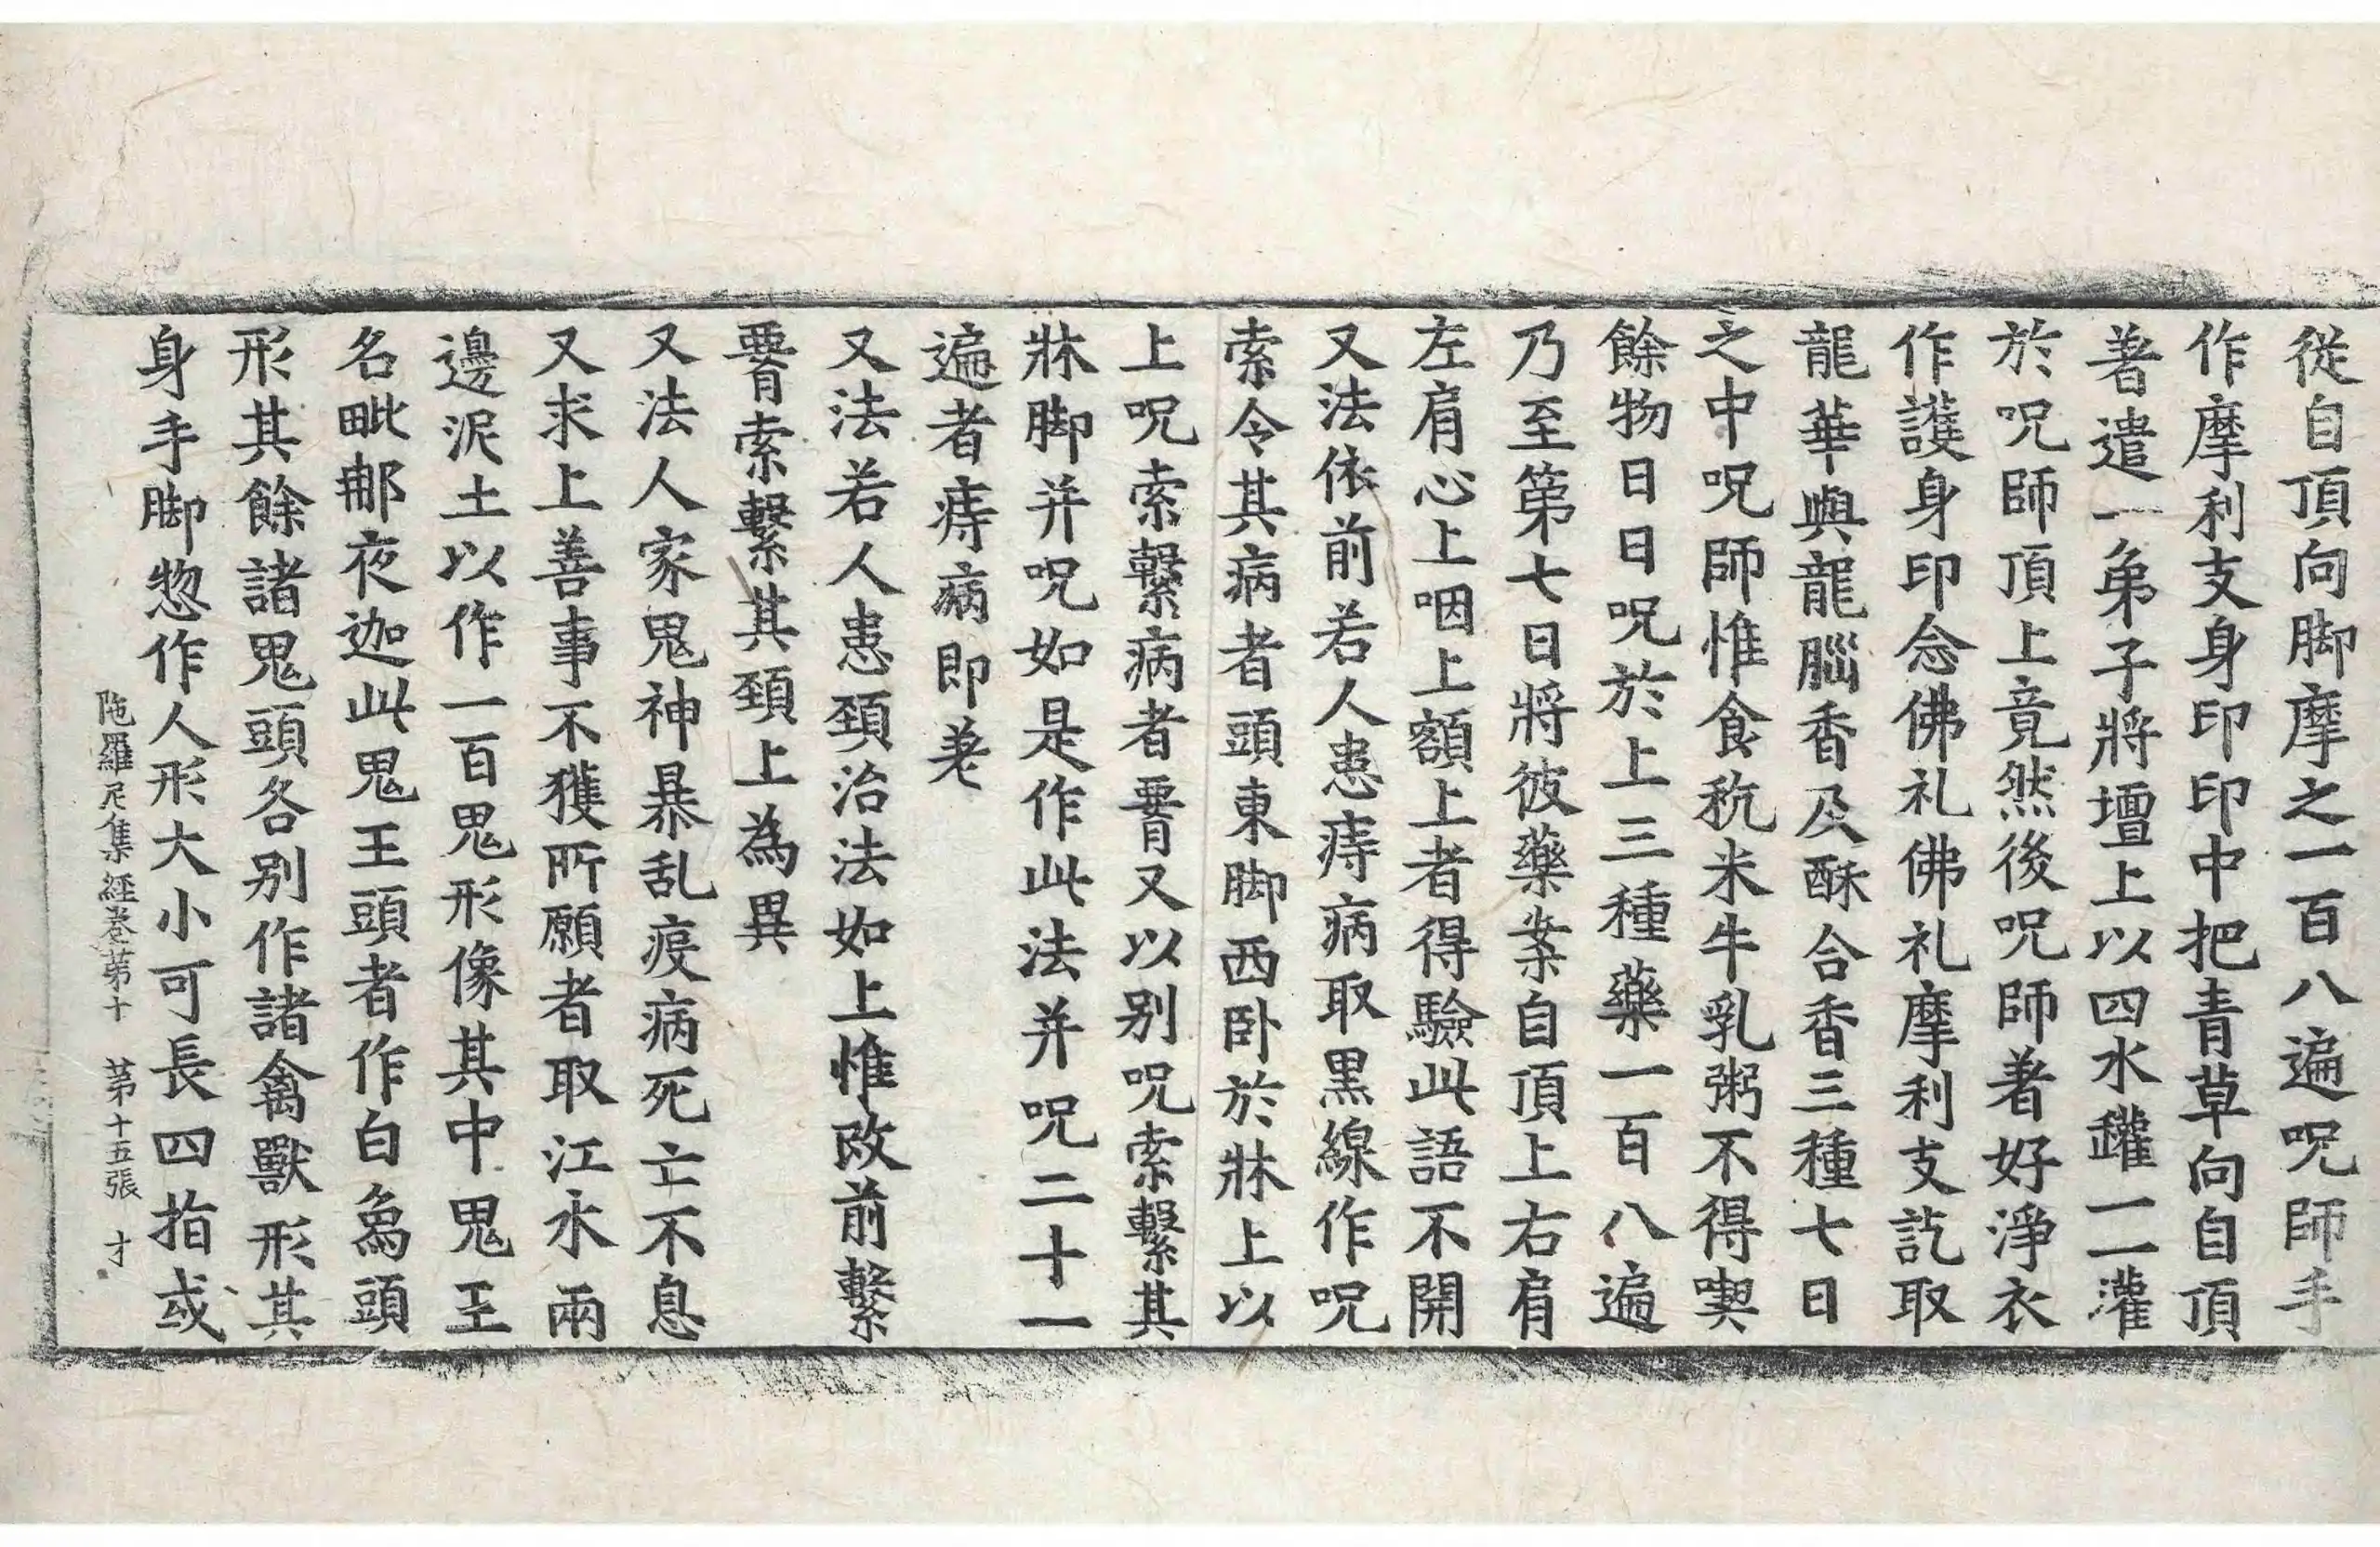 從自頂向脚摩之一百八遍呪師手
作摩利支身印印中把青草向自頂
著遣一弟子將壇上以四水罐一一灌
於呪師頂上竟然後呪師著好淨衣
作護身印念佛礼佛礼摩利支訖取
龍華與龍腦香及酥合香三種七日
之中呪師惟食秔米牛乳粥不得喫
餘物日日呪於上三種藥一百八遍
乃至第七日將彼藥案自頂上右肩
左肩心上咽上額上者得驗此語不開
又法依前若人患痔病取黒線作呪
索令其病者頭東脚西卧於牀上以
上呪索繫病者𦝫又以别呪索繫其
牀脚并呪如是作此法并呪二十一
遍者痔病即差
又法若人患頸治法如上惟改前繫
𦝫索繫其頸上為異
又法人家鬼神暴乱疫病死亡不息
又求上善事不獲所願者取江水兩
邊泥土以作一百鬼形像其中鬼王
名毗那夜迦此鬼王頭者作白象頭
形其餘諸鬼頭各别作諸禽獸形其
身手脚惣作人形大小可長四指或
陁羅尼集經卷苐十 苐十五張 才